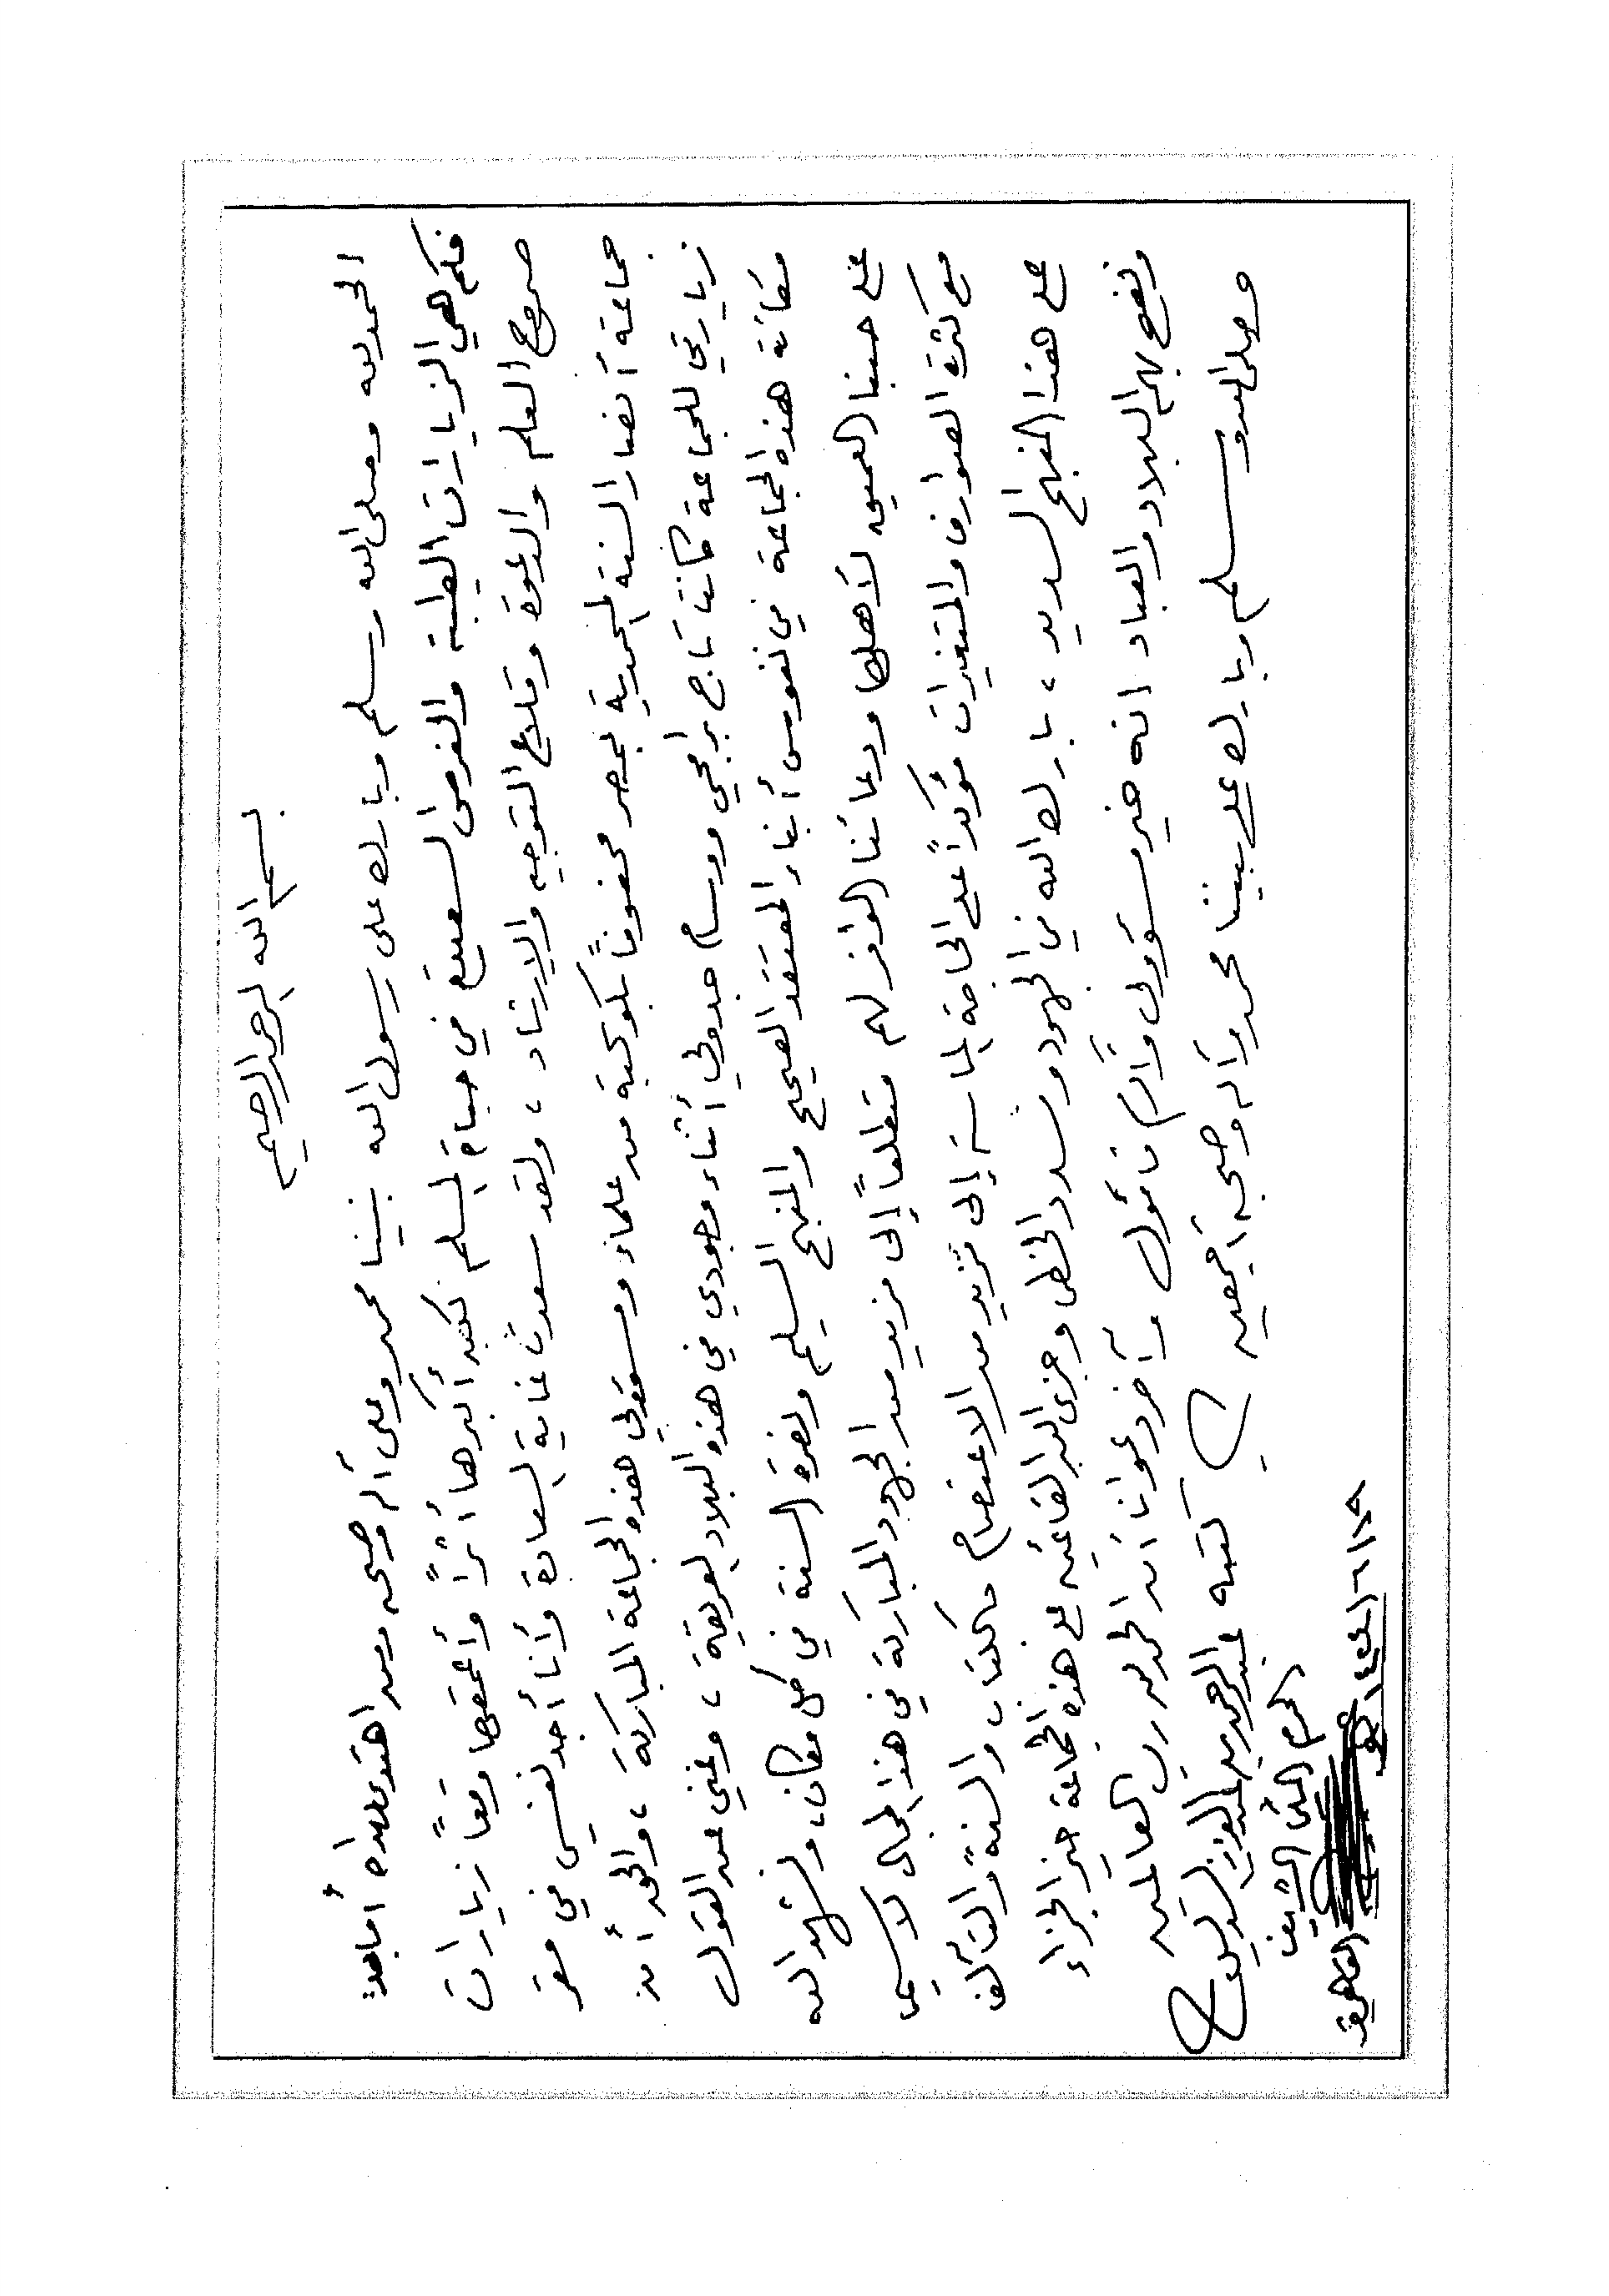 بسم الله الرحمن الرحيم
الحمد لله وصلى الله وسلم وبارك على رسول الله نبينا محمد وعلى آله وصحبه ومن اهتدى بهداه أما بعد:
فكم هي الزيارات الطيبة والفرص السعيدة في حياة المسلم لكن أكبرها أثراً وأعمقها وقعاً زيارات
صروح العلم والدعوة وقلاع التوجيه والإرشاد، ولقد سعدت غاية السعادة وأنا أجد نفسي في مقر
جماعة أنصار السنة المحمدية بمصر محفوفاً بكوكبة من علماء ومسؤولي هذه الجماعة المباركة، والحق أن
زيارتي للجماعة كانت تاج برامجي ووسام جدولي أثناء وجودي في هذه البلاد العريقة، وغني عن القول
مكانة هذه الجماعة في نفوس أبناء المعتقد الصحيح والمنهج السليم ونصرة السنة في كل مكان، ونشهد الله
على حبنا العميق لأهلها ودعائنا الوافر لهم متطلعاً إلى مزيد من الجهود المباركة في هذا المجال لاسيما
مع كثرة الصوارف والمتغيرات مؤكداً على الحاجة الماسة إلى مزيد من الاعتصام بالكتاب والسنة والتآلف
على هذا المنهج السديد، بارك الله في الجهود وسدد الخطى وجزى الله القائمين على هذه الجماعة خير الجزاء
ونفع بهم البلاد والعباد انه خير مسؤول وأكرم مأمول وآخر دعوانا أن الحمد لله رب العالمين
وصلى الله وسلم وبارك على نبينا محمد وآله وصحبه أجمعين
كتبه عبدالرحمن بن عبدالعزيز السديس
الحرم المكي الشريف
القاهرة